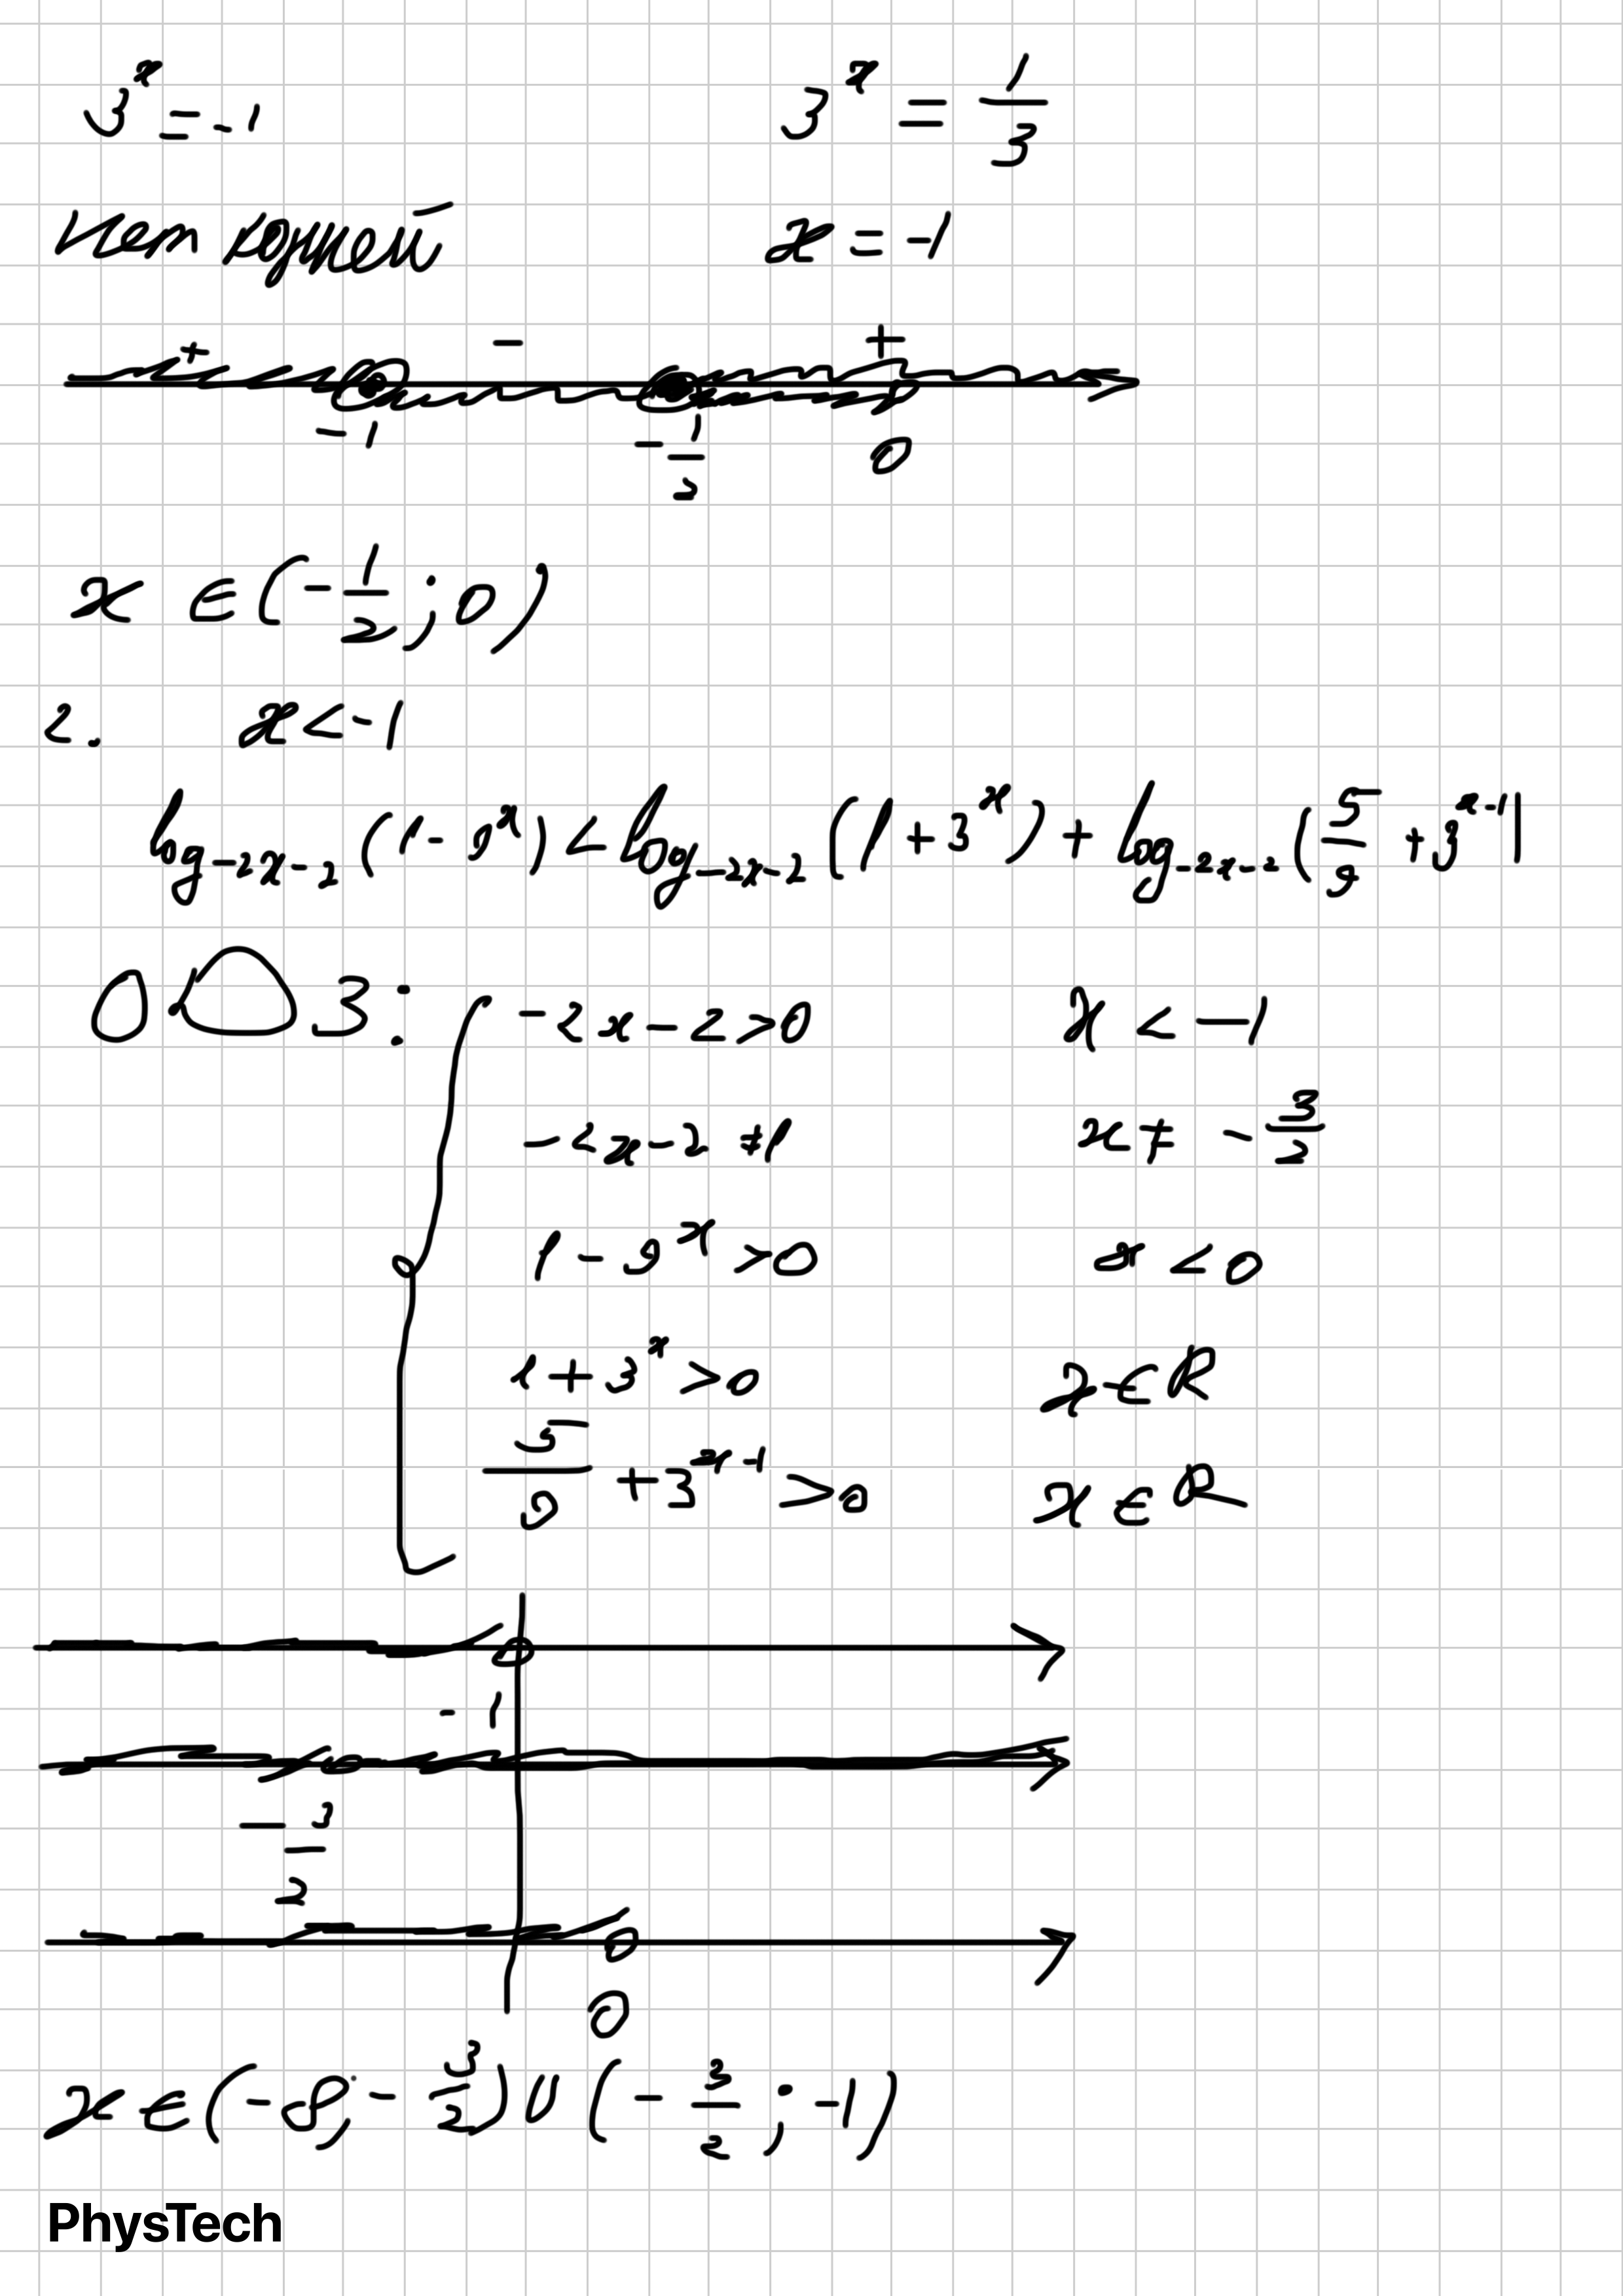 3^x = -1     3^x = 1/3
нет корней     x = -1
+     -     +
-1     -1/2     0
x ∈ (-1/2; 0)
2.     x < -1
log_{-2x-2} (1 - 9^x) < log_{-2x-2} ((1 + 3^x) + log_{-2x-2} (5/9 + 3^{x-1})
ОДЗ: { -2x - 2 > 0     x < -1
-2x - 2 ≠ 1     x ≠ -3/2
1 - 9^x > 0     x < 0
1 + 3^x > 0     x ∈ R
5/9 + 3^{x-1} > 0     x ∈ R
-1
-3/2
0
x ∈ (-∞; -3/2) ∪ (-3/2; -1)
PhysTech